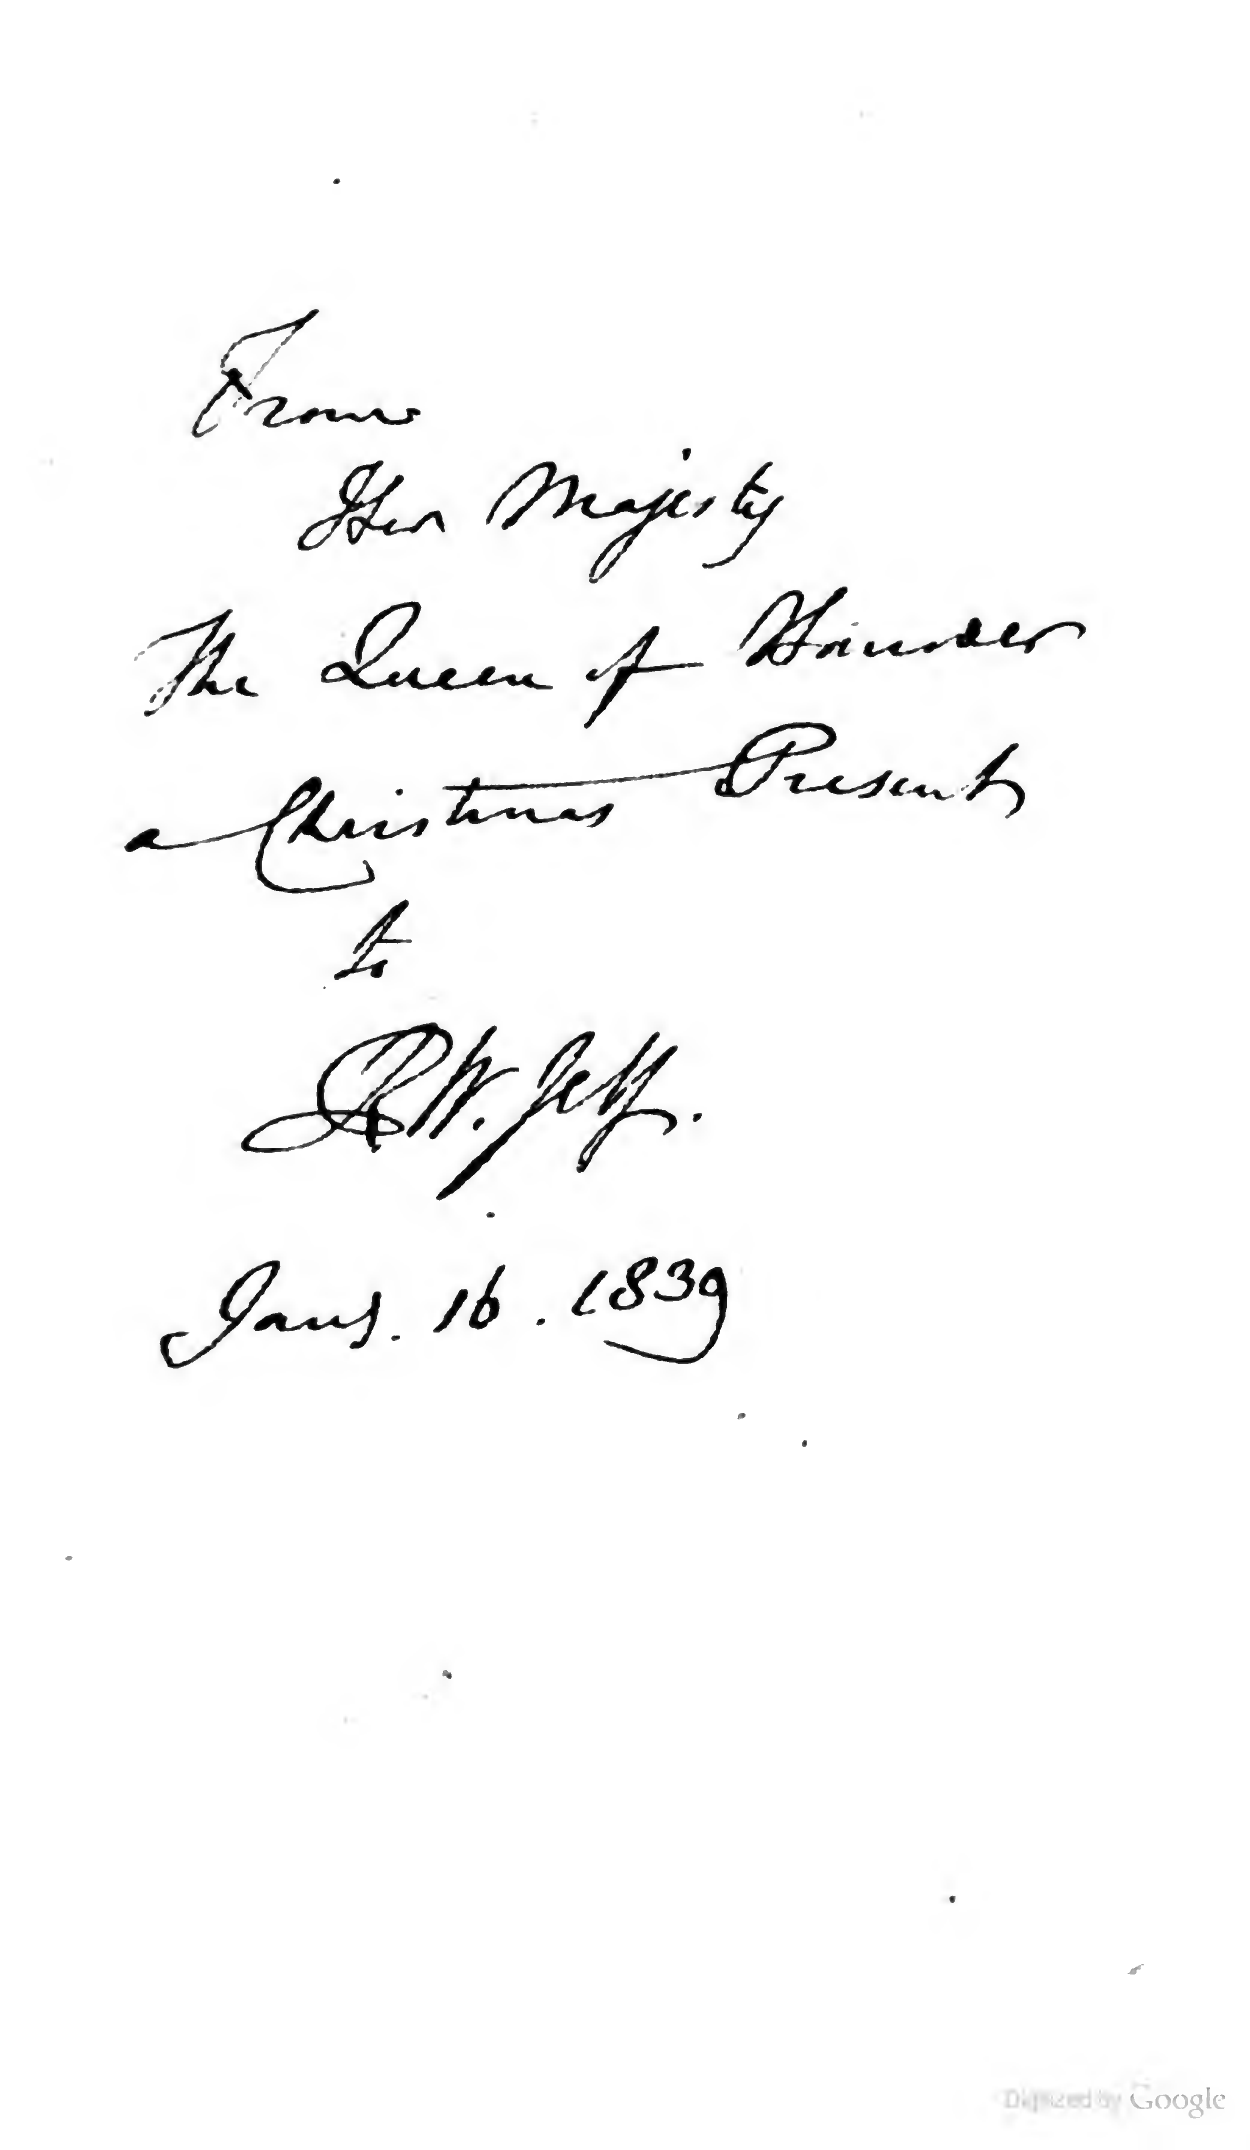 From
Her Majesty
The Queen of Hanover
a Christmas Present
to
R W. Jelf.
Jany. 16. 1839
Digitized by Google